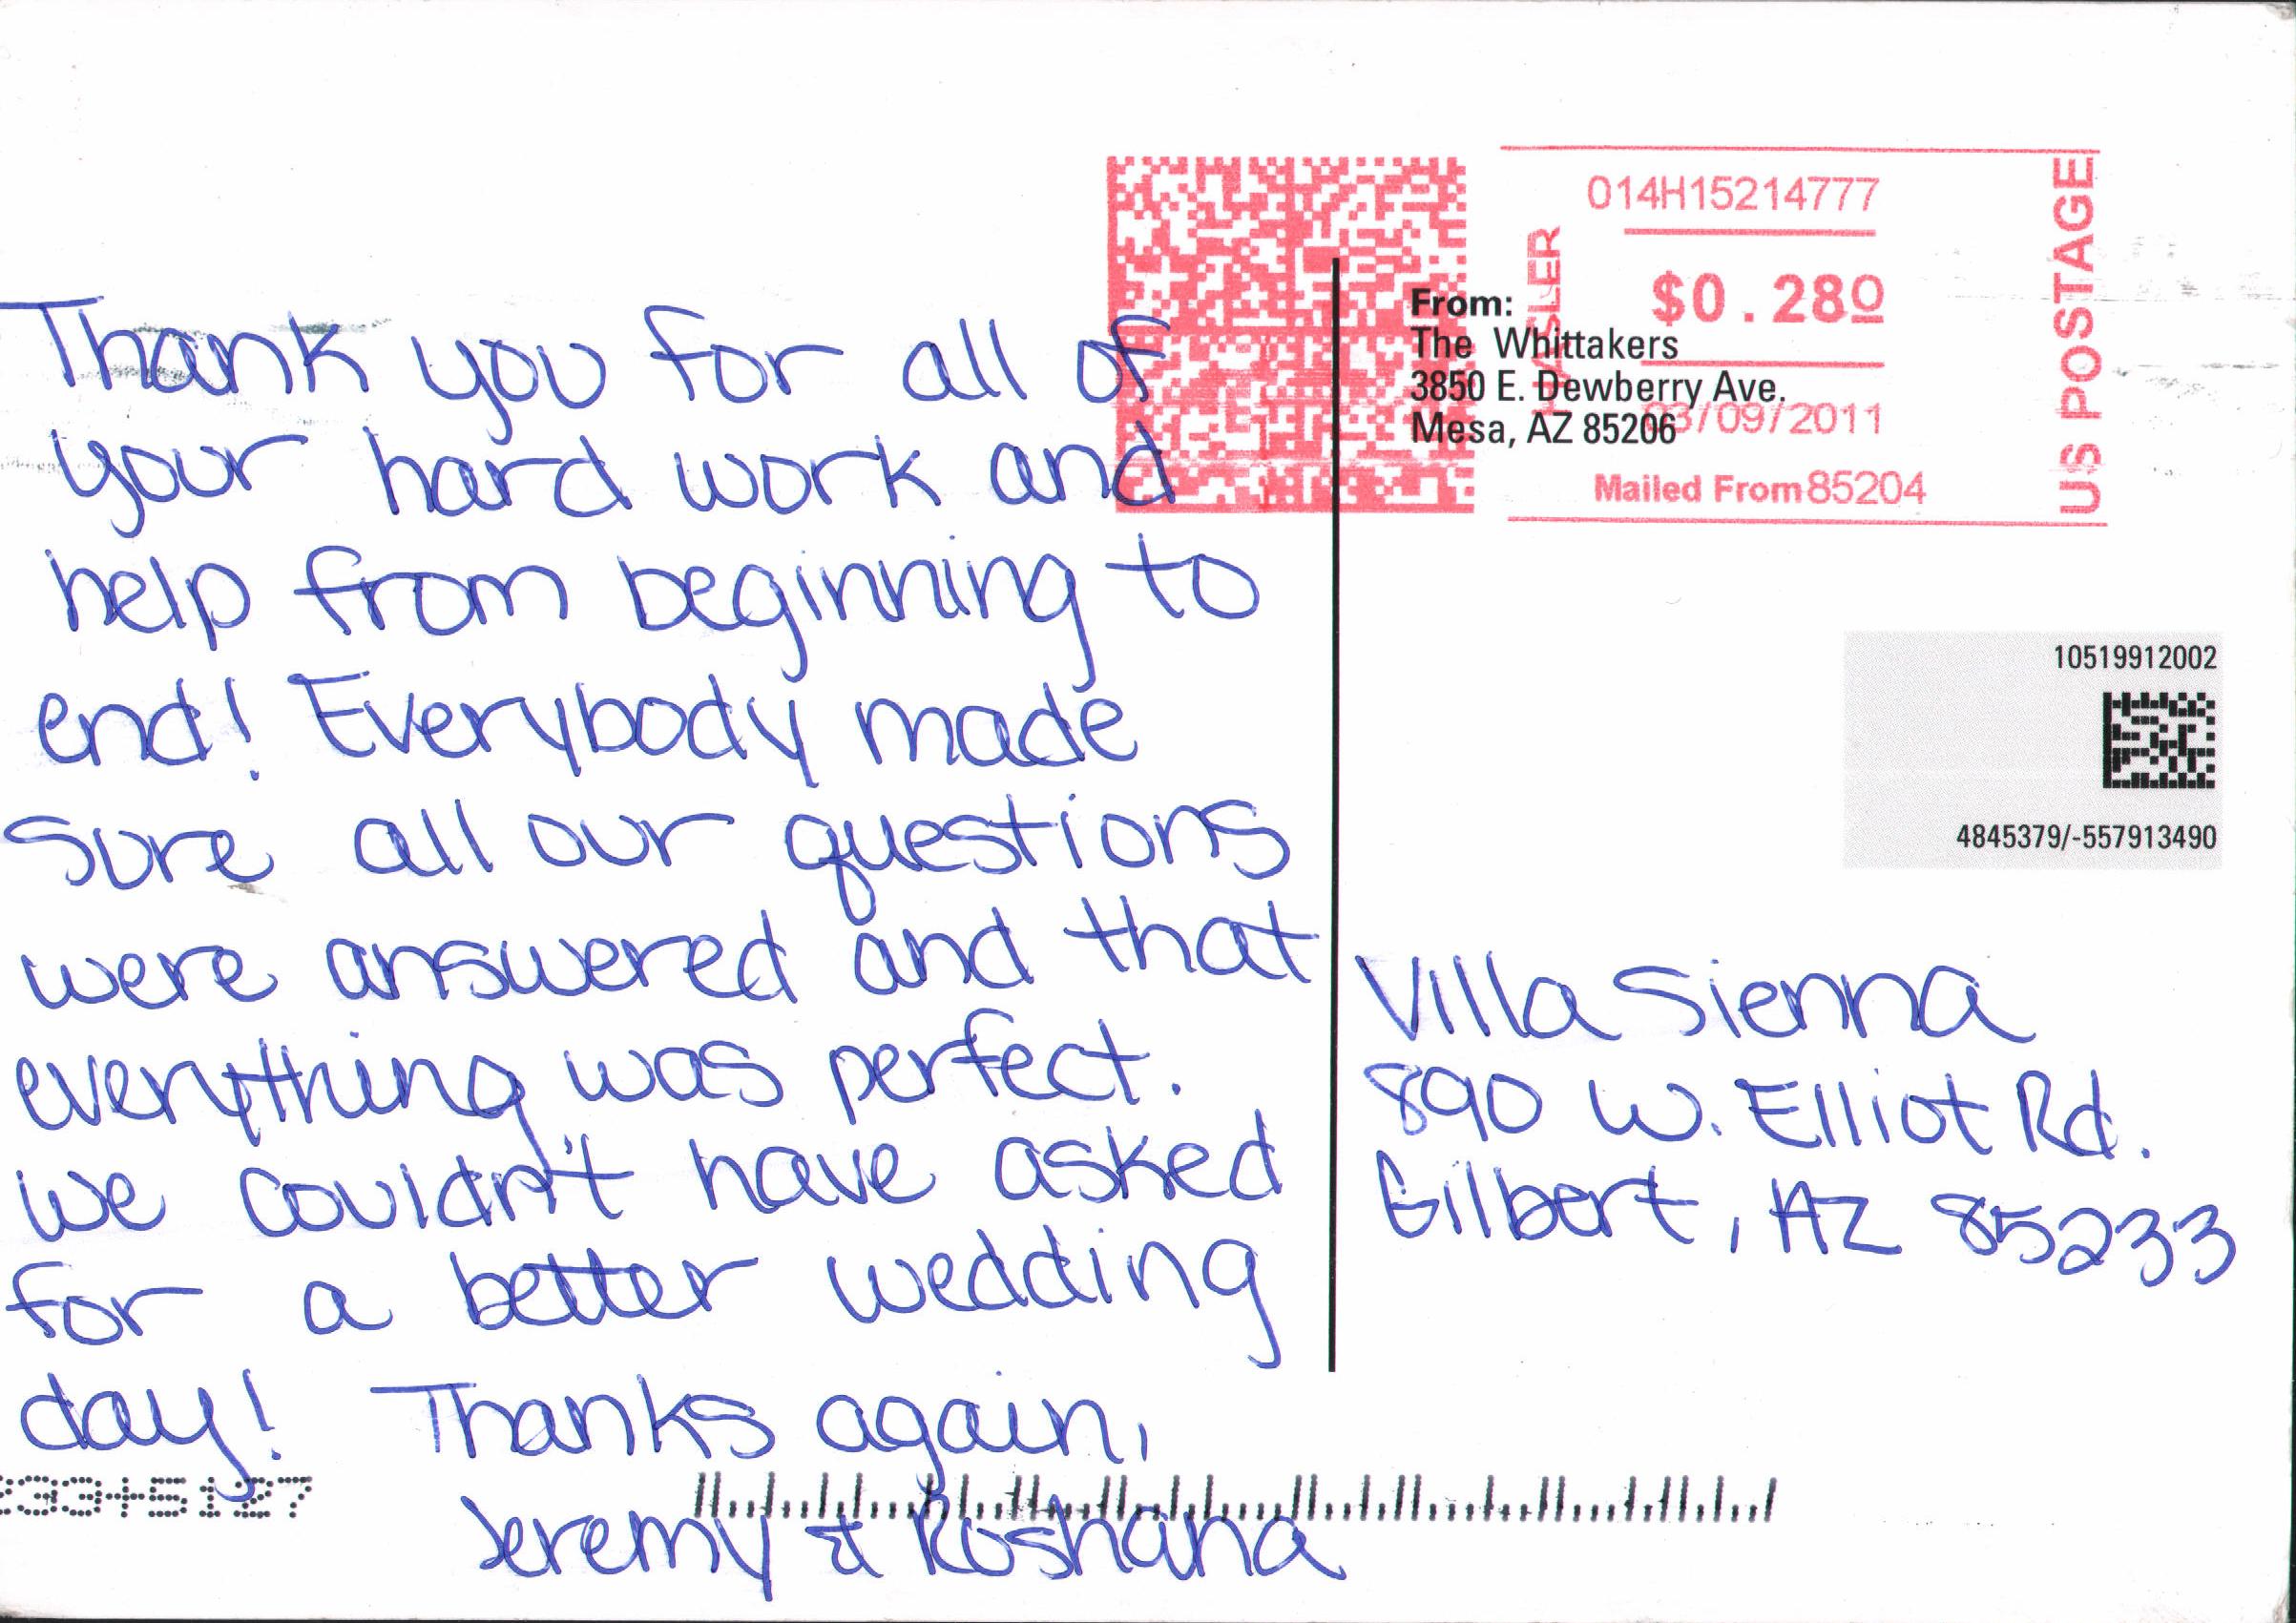 Thank you for all of
your hard work and
help from beginning to
end! Everybody made
sure all our questions
were answered and that
everything was perfect.
We couldn't have asked
for a better wedding
day! Thanks again,
Jeremy & Roshana
233+5127
014H15214777
HASLER
$0.280
03/09/2011
Mailed From 85204
US POSTAGE
From:
The Whittakers
3850 E. Dewberry Ave.
Mesa, AZ 85206
10519912002
4845379/-557913490
Villa Sienna
890 W. Elliot Rd.
Gilbert, AZ 85233